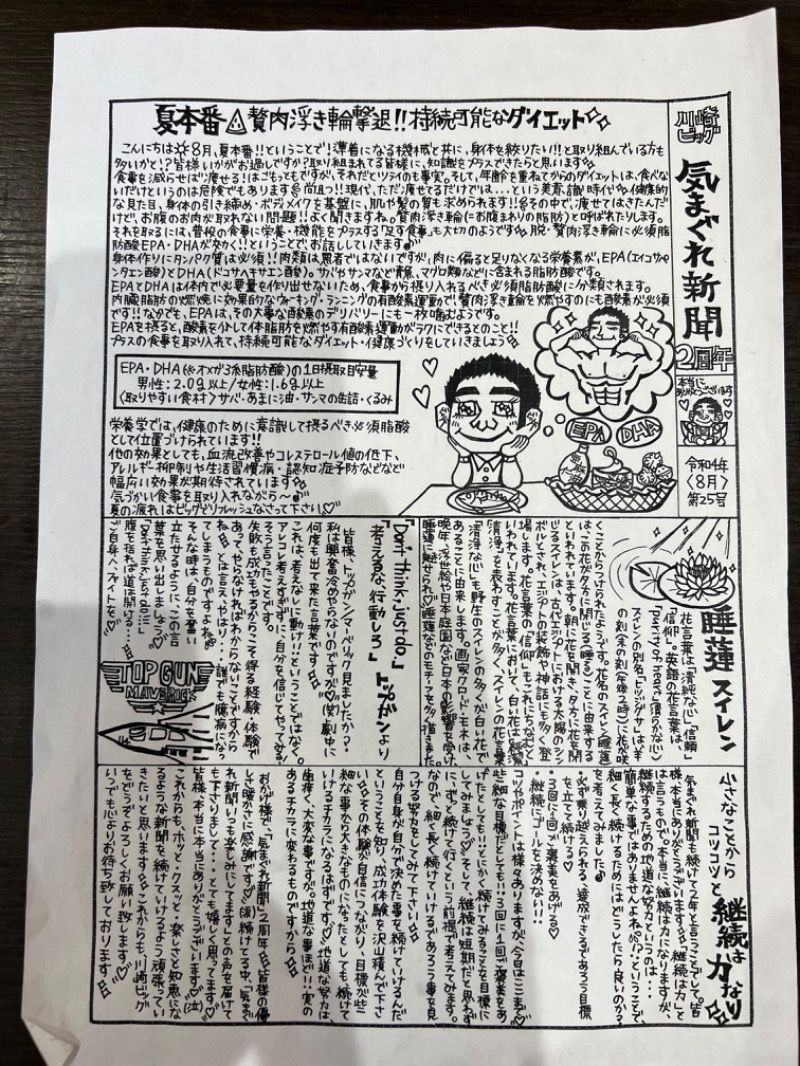 川崎ビッグ
気まぐれ新聞
2周年
本当にありがとうございます
令和4年
〈8月〉
第25号
夏本番⚠贅肉浮き輪撃退!!持続可能なダイエット
こんにちは☀8月、夏本番!!ということで!薄着になる機械と共に、身体を絞りたい!!と取り組んでいる方も
多いかと!?皆様いかがお過しですか?取り組まれてる皆様に、知識をプラスできたらと思います
食事を減らせば凄せる!はごもっともですが、それだとツライのも事実。そして、年齢を重ねてからのダイエットは、食べな
いだけというのは危険でもあります
現代、ただ凄せてるだけでは…という美意識時代 健康的
な見た目、身体の引き締め・ボディメイクを基盤に、肌や髪の質も求められます!!その中で、凄せてはきたんだ
けど、お腹のお肉が取れない問題!!よく聞きますね。贅肉浮き輪(=お腹まわりの脂肪)と呼ばれたりします。
それを取るには、普段の食事に栄養・機能をプラスする「足す食事」も大切のようです 脱・贅肉浮き輪に必須脂
肪酸EPA・DHAが効く!!ということで、お話ししていきます♪
身体作りにタンパク質は必須!!肉類は悪者ではないですが、肉に偏ると足りなくなる栄養素が、EPA(エイコサペ
ンタエン酸)とDHA(ドコサヘキサエン酸)。サバやサンマなど青魚、マグロ類などに含まれる脂肪酸です。
EPAとDHAは体内で必要量を作り出せないため、食事から摂り入れるべき必須脂肪酸に分類されます。
内臓脂肪の燃焼に効果的なウォーキング・ランニングの有酸素運動で!贅肉浮き輪を燃やすのにも酸素が必須
です!!なかでも、EPAは、その大事な酸素のデリバリーにも一枚噛むようです。
EPAを摂ると、酸素を介して体脂肪を燃やす有酸素運動がラクにできるとのこと!!
プラスの食事を取り入れて、持続可能なダイエット・健康づくりをしていきましょう
EPA・DHA(※オメガ3系脂肪酸)の1日摂取目安量
男性:2.0g以上/女性:1.6g以上
〈取りやすい食材〉サバ・あまに油・サンマの缶詰・くるみ
EPA
DHA
栄養学では、健康のために意識して摂るべき必須脂酸
として位置づけられています!!
他の効果としても、血流改善やコレステロール値の低下、
アレルギー抑制や生活習慣病・認知症予防などなど
幅広い効果が期待されています
気づかい食事を取り入れながら〜♪
夏の疲れはビッグでリフレッシュなさって下さい♡
睡蓮 スイレン
花言葉は「清純な心」「信頼」
「信仰」。英語の花言葉は、
「purity of heart」(清らかな心)
スイレンの別名、ヒツジグサ」は、羊
の刻(未の刻〈午後2時〉)に花が咲
くことからつけられたようです。花名のスイレン(睡蓮)
は「この花が夕方に閉じる(睡る)ことに由来する
といわれています。朝に花を開き、夕方に花を閉
じるスイレンは、古代エジプトにおける太陽のシン
ボルとされ、エジプトの装飾や神話にも多く登
場します。花言葉の「信仰」もこれにちなむと
いわれています。花言葉において、白い花は「純潔」
「清浄」を表わすことが多く、スイレンの花言葉
「清浄な心」も野生のスイレンの多くが白い花で
あることに由来します。画家クロード・モネは、
晩年、浮世絵や日本庭園など日本の影響を受け
睡蓮に魅せられ♡睡蓮などのモチーフを多く描きました
「Don't think,just do.」
「考えるな、行動しろ」 トップガンより
皆様、トップガン/マーベリック見ましたか?
私は興奮冷めやらないのですが♡(笑)劇中に
何度も出て来た言葉です
これは、考えなしに動け!!ということではなく。
アレコレ考えすぎずに、自分を信じてやってみる!
そう言ったことです。
失敗も成功も、やるからこそ得る経験、体験で
あって、やらなければわからないことですから
ね とは言え、やはり…誰でも臆病になっ
てしまうものですよね
そんな時は、自分を奮い
立たせるように、この言
葉を思い出しましょう
「Don't think,just do!!!」
腹を括れば道は開ける…
ご自身へ、ファイトを♡
TOP GUN
MAVERICK
小さなことから
コツコツと 継続は力なり
気まぐれ新聞も続けて2年と言うことでして。皆
様、本当にありがとうございます 「継続は力」と
は言うもので。本当に継続は力になりますが、
継続するための地道な努力というのは…
簡単な事ではありませんよね!?ということで、
細く長く続けるためにはどうしたら良いのか?
を考えてみました♪
・必ず乗り越えられる、達成できるであろう目標
を立てて続ける♡
・3回に1回ご褒美をあげる♡
・継続にゴールを決めない!!
コツやポイントは様々ありますが、今日は三つまで
些細な目標だとしても!!3回に1回ご褒美をあ
げたとしても!!とにかく続けてみることを目標に
してみましょう♡そして、継続は短期だと思わず
に、ずっと続けて行くという前提で考えてみます。
なので、細く長く続けていけるであろう事を見
つける努力をしてみて下さい
自分自身が自分で決めた事を続けていけるんだ
ということを知り、成功体験を沢山積んで下さ
い その体験が自信につながり、目標が些
細な事から大きなものになったとしても続けて
いけるチカラになるはずです♡地道な努力は、
歯痒く、大変な事ですが、地道な事ほど!!実の
あるチカラに変わるものですから
おかげ様で、「気まぐれ新聞」2周年 皆様の優
しく暖かさに感謝です♡(涙)続けてる中、「気まぐ
れ新聞いつも楽しみにしてます」との声を届けて
も下さりまして…とても嬉しく思ってます
皆様、本当に本当にありがとうございます♡(泣)
これからも、ホッと・クスッと・楽しさと知恵にな
るような新聞を続けていけるよう頑張ってい
きたいと思います これからも、川崎ビッグ
をどうぞよろしくお願い致します。
いつでも心よりお待ち致しております